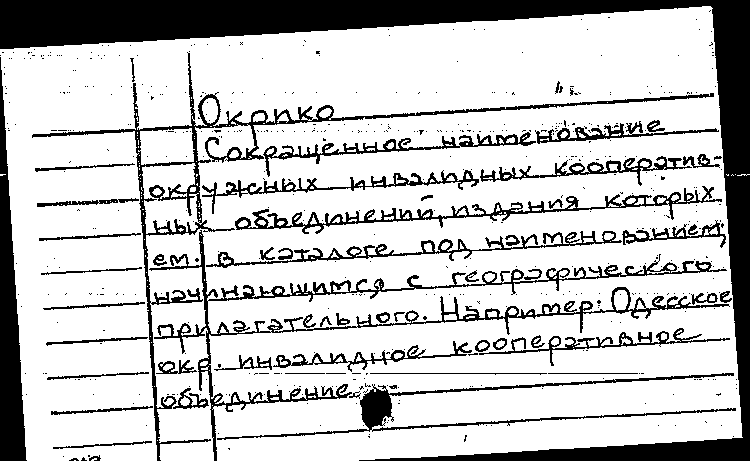 Окрико
Сокращенное наименование
окружных инвалидных кооператив-
ных объединений, издания которых
см. в каталоге под наименованием,
начинающимся с географического
прилагательного. Например: Одесское
окр. инвалидное кооперативное
объединение